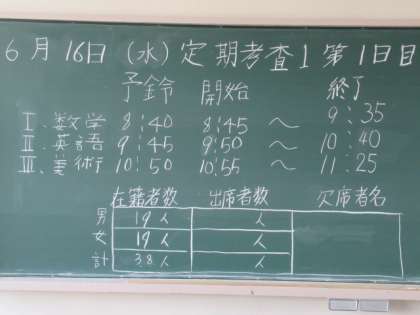 6月16日(水)定期考査1第1日目
予鈴 開始 終了
I. 数学 8:40 8:45 ~ 9:35
II. 英語 9:45 9:50 ~ 10:40
III. 美術 10:50 10:55 ~ 11:25
在籍者数 出席者数 欠席者名
男 19人 人
女 19人 人
計 38人 人